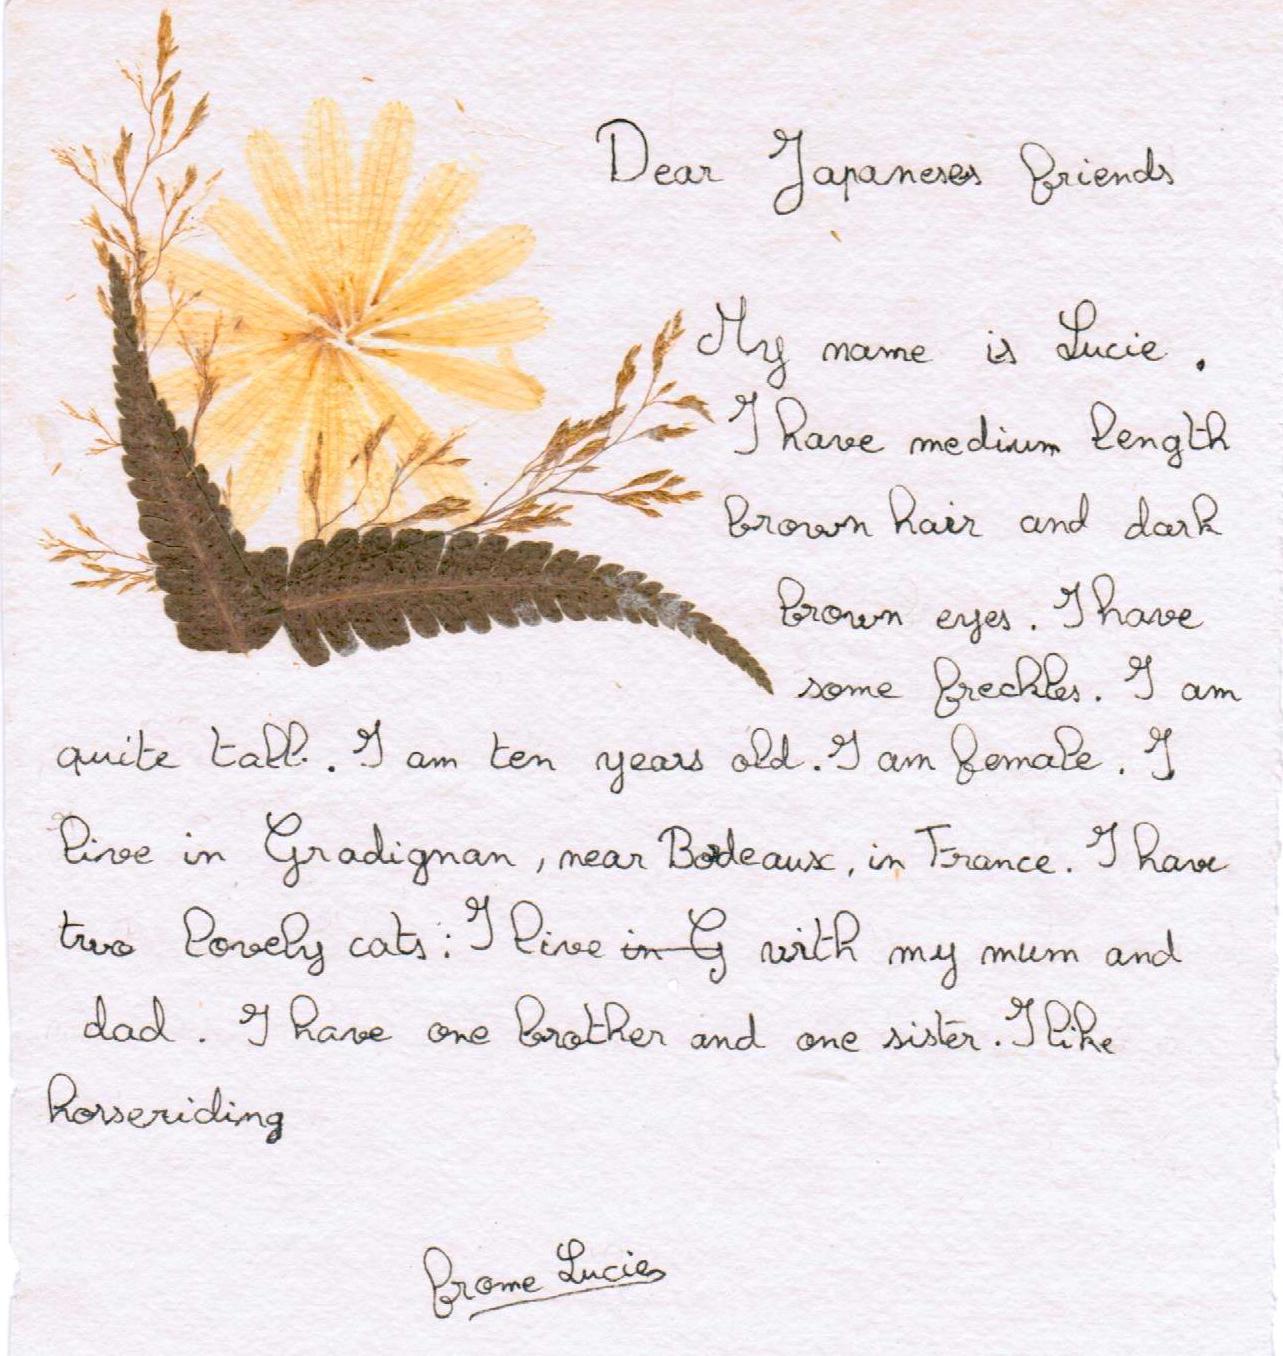 Dear Japaneses friends
My name is Lucie.
I have medium length
brown hair and dark
brown eyes. I have
some freckles. I am
quite tall. I am ten years old. I am female. I
live in Gradignan, near Bodeaux, in France. I have
two lovely cats: I live in G with my mum and
dad. I have one brother and one sister. I like
horseriding
frome Lucie